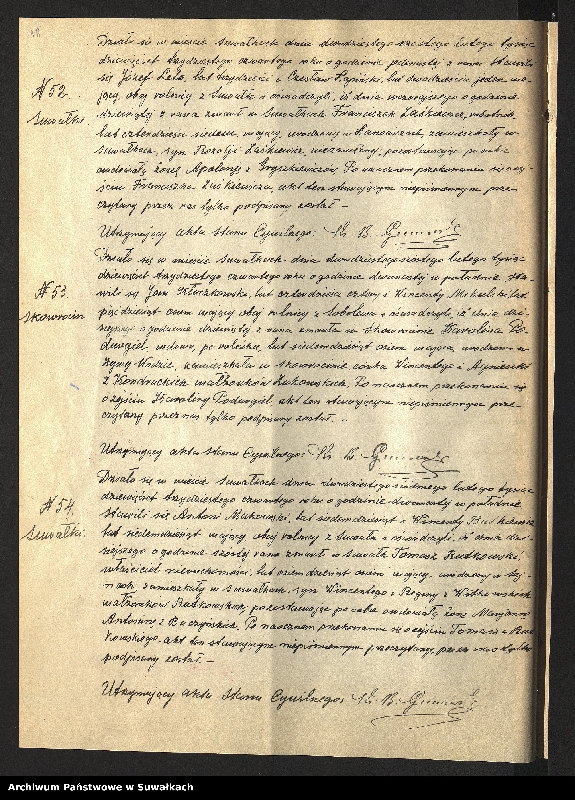 № 52.
Suwałki
Działo się w mieście Suwałkach dnia dwudziestego szóstego lutego tysiąc
dziewięćset trzydziestego czwartego roku o godzinie dziewiątej z rana. Stawili
się Józef Lato, lat trzydzieści i Czesław Łapiński, lat dwadzieścia jeden ma-
jący, obaj rolnicy z Suwałk i oświadczyli, iż dnia wczorajszego o godzinie
dziewiątej z rana zmarł w Suwałkach Franciszek Luśkiewicz, robotnik,
lat czterdzieści siedem mający, urodzony w zamieszkały w
Suwałkach, syn Rozalji Luśkiewicz, niezamężnej, pozostawiając po sobie
owdowiałą żonę Apolonję z Gryszkiewiczów. Po naocznem przekonaniu się o zej-
ściu Franciszka Luśkiewicza, akt ten stawającym niepiśmiennym prze-
czytany przez nas tylko podpisany został. –
Utrzymujący akta Stanu Cywilnego: Ks. B.
№ 53.
Działo się w mieście Suwałkach dnia dwudziestego szóstego lutego tysiąc
dziewięćset trzydziestego czwartego roku o godzinie dwunastej w południe. Sta-
wili się Jan Kłoczkowski, lat czterdzieści cztery i Wincenty Michalski, lat
pięćdziesiąt osiem mający obaj rolnicy z Sobolewa i oświadczyli, iż dnia dzi-
siejszego o godzinie dziewiątej z rana zmarła w Karolina Po-
dwoziel wdowa, po rolniku, lat siedemdziesiąt osiem mająca, urodzona w
zamieszkała w córka Wincentego i Agnieszki
z małżonków Żukowskich. Po naocznem przekonaniu się
o zejściu Karoliny Podwoziel akt ten stawającym niepiśmiennym prze-
czytany przez nas tylko podpisany został. –
Utrzymujący akta Stanu Cywilnego: Ks. B.
№ 54.
Suwałki.
Działo się w mieście Suwałkach dnia dwudziestego siódmego lutego tysiąc
dziewięćset trzydziestego czwartego roku o godzinie dwunastej w południe.
Stawili się Antoni Makowski, lat siedemdziesiąt i Wincenty
lat siedemdziesiąt mający obaj rolnicy z Suwałk i oświadczyli, iż dnia dzi-
siejszego o godzinie szóstej rano zmarł w Suwałkach Tomasz Rutkowski,
właściciel nieruchomości, lat osiemdziesiąt osiem mający, urodzony w
zamieszkały w Suwałkach, syn Wincentego i Reginy z
małżonków Rutkowskich, pozostawiając po sobie owdowiałą żonę Marjannę
Antoninę z Po naocznem przekonaniu się o zejściu Tomasza Rut-
kowskiego akt ten stawającym niepiśmiennym przeczytany, przez nas tylko
podpisany został. –
Utrzymujący akta Stanu Cywilnego: Ks. B.
Archiwum Państwowe w Suwałkach